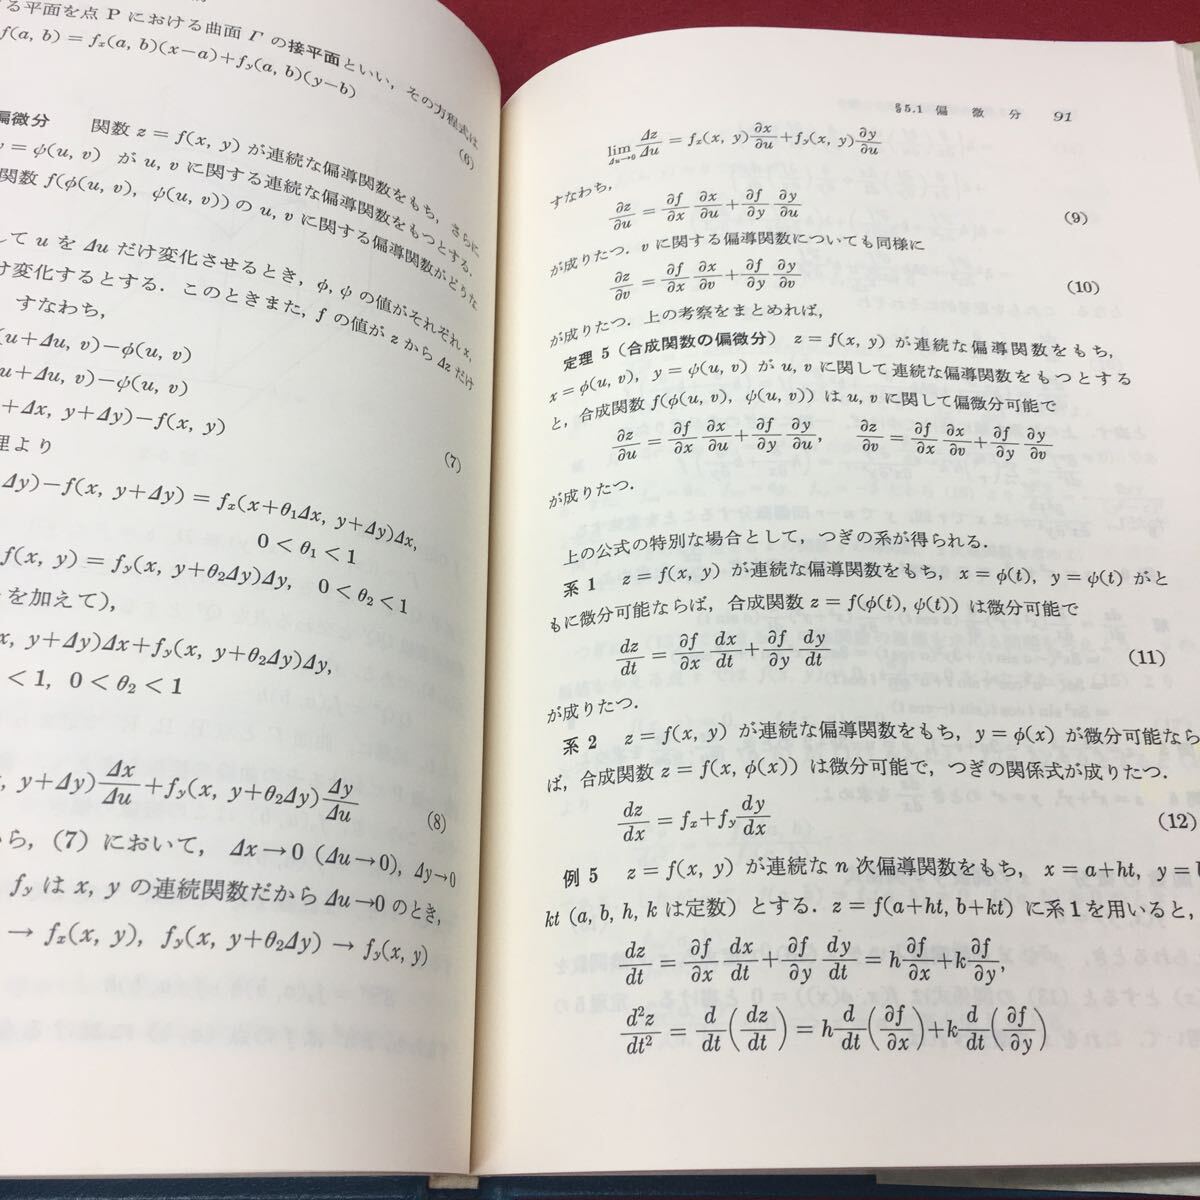 る平面を点 P における曲面 Γ の接平面といい，その方程式は
f(a, b) = fx(a, b)(x−a)+fy(a, b)(y−b)
(6)
偏微分 関数 z = f(x, y) が連続な偏導関数をもち，さらに
y = ψ(u, v) が u, v に関する連続な偏導関数をもつとする．
関数 f(φ(u, v), ψ(u, v)) の u, v に関する偏導関数がどうな
して u を Δu だけ変化させるとき，φ, ψ の値がそれぞれ x,
け変化するとする．このときまた，f の値が z から Δz だけ
すなわち，
(u+Δu, v)−φ(u, v)
u+Δu, v)−ψ(u, v)
+Δx, y+Δy)−f(x, y)
(7)
理より
Δy)−f(x, y+Δy) = fx(x+θ1Δx, y+Δy)Δx,
0 < θ1 < 1
f(x, y) = fy(x, y+θ2Δy)Δy, 0 < θ2 < 1
を加えて)，
x, y+Δy)Δx+fy(x, y+θ2Δy)Δy,
< 1, 0 < θ2 < 1
x, y+Δy)Δx/Δu+fy(x, y+θ2Δy)Δy/Δu
(8)
ら，(7) において，Δx→0 (Δu→0), Δy→0
fy は x, y の連続関数だから Δu→0 のとき，
→ fx(x, y), fy(x, y+θ2Δy) → fy(x, y)
§5.1 偏微分 91
lim Δu→0 Δz/Δu = fx(x, y)∂x/∂u+fy(x, y)∂y/∂u
すなわち，
∂z/∂u = ∂f/∂x ∂x/∂u + ∂f/∂y ∂y/∂u (9)
が成りたつ．v に関する偏導関数についても同様に
∂z/∂v = ∂f/∂x ∂x/∂v + ∂f/∂y ∂y/∂v (10)
が成りたつ．上の考察をまとめれば，
定理 5 (合成関数の偏微分) z = f(x, y) が連続な偏導関数をもち，
x = φ(u, v), y = ψ(u, v) が u, v に関して連続な偏導関数をもつとする
と，合成関数 f(φ(u, v), ψ(u, v)) は u, v に関して偏微分可能で
∂z/∂u = ∂f/∂x ∂x/∂u + ∂f/∂y ∂y/∂u, ∂z/∂v = ∂f/∂x ∂x/∂v + ∂f/∂y ∂y/∂v
が成りたつ．
上の公式の特別な場合として，つぎの系が得られる．
系 1 z = f(x, y) が連続な偏導関数をもち，x = φ(t), y = ψ(t) がと
もに微分可能ならば，合成関数 z = f(φ(t), ψ(t)) は微分可能で
dz/dt = ∂f/∂x dx/dt + ∂f/∂y dy/dt (11)
が成りたつ．
系 2 z = f(x, y) が連続な偏導関数をもち，y = φ(x) が微分可能なら
ば，合成関数 z = f(x, φ(x)) は微分可能で，つぎの関係式が成りたつ．
dz/dx = fx+fy dy/dx (12)
例 5 z = f(x, y) が連続な n 次偏導関数をもち，x = a+ht, y =
kt (a, b, h, k は定数) とする．z = f(a+ht, b+kt) に系 1 を用いると，
dz/dt = ∂f/∂x dx/dt + ∂f/∂y dy/dt = h∂f/∂x + k∂f/∂y,
d²z/dt² = d/dt(dz/dt) = h d/dt(∂f/∂x) + k d/dt(∂f/∂y)